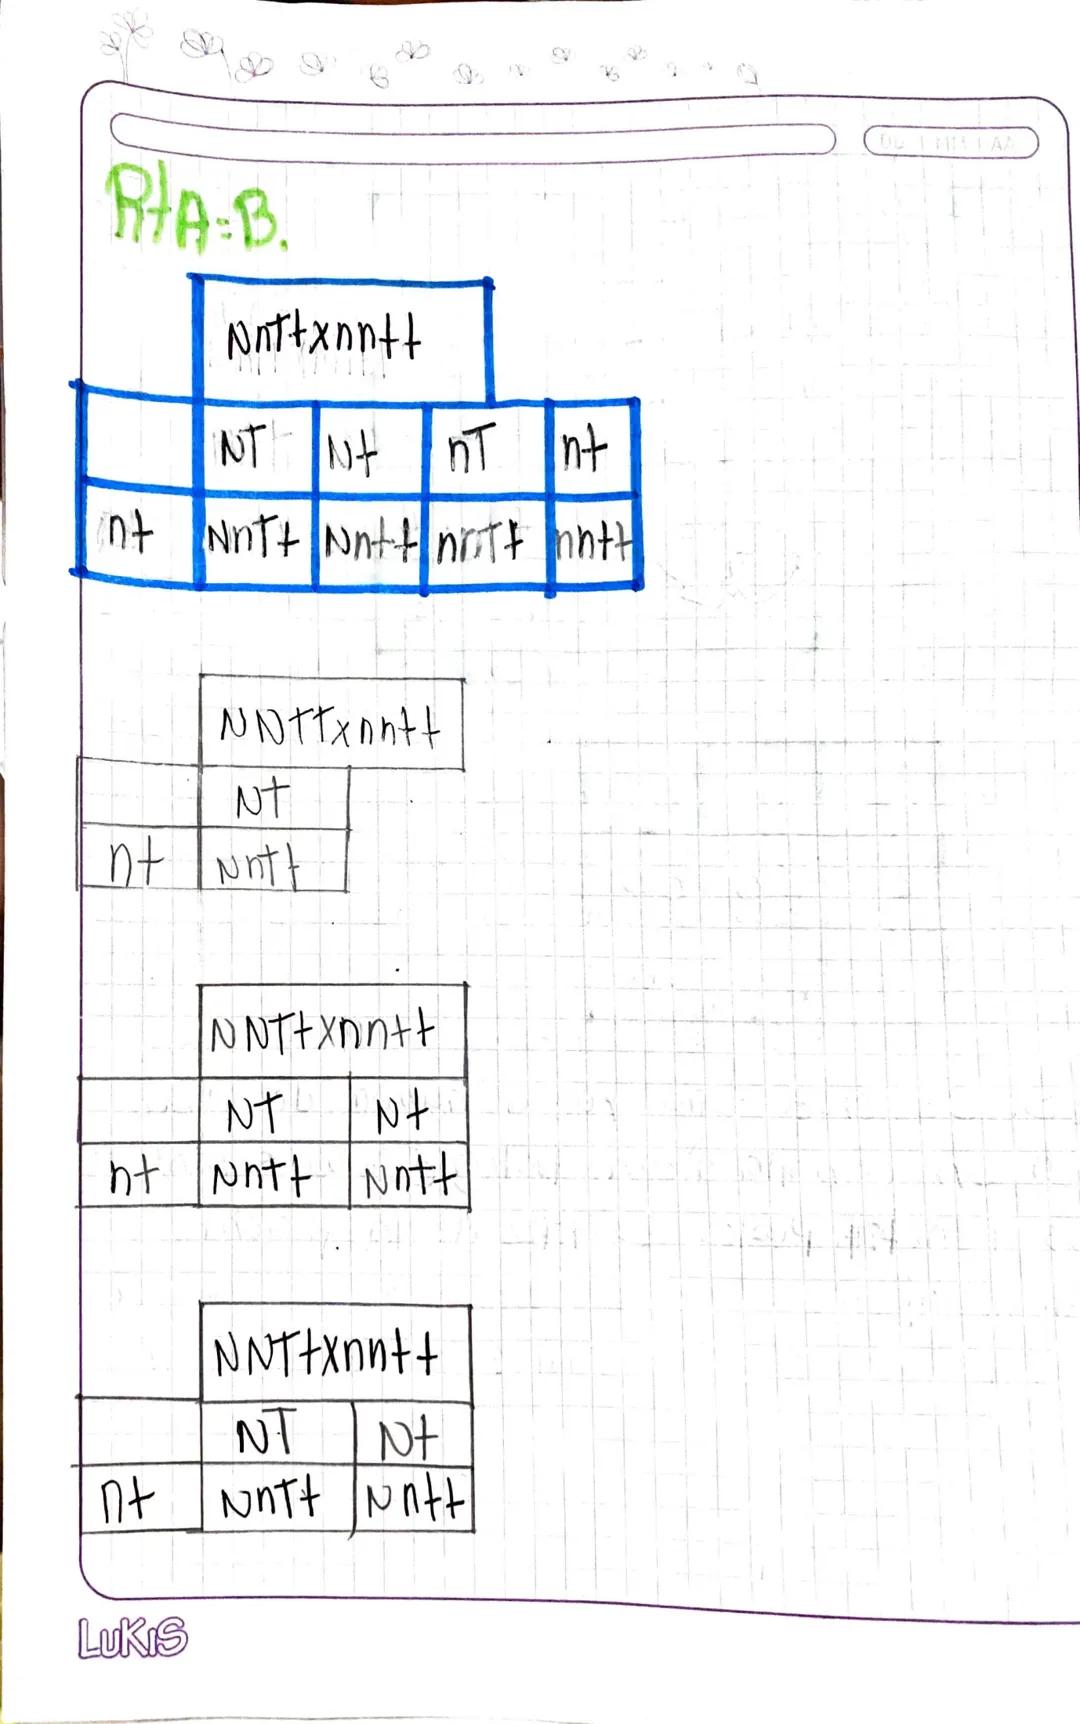 RtA=B.
NnTtxnntt
NT Nt nT nt
nt NnTt Nntt nnTt nntt
NNTTxnntt
NT
nt NnTt
NNTtxnntt
NT Nt
nt NnTt Nntt
NNTtxnntt
NT Nt
nt NnTt Nntt
LuKiS